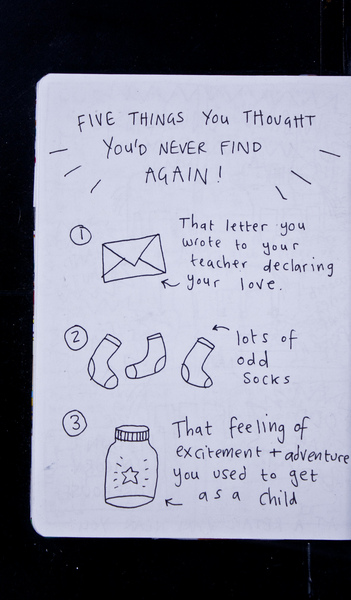 FIVE THINGS YOU THOUGHT
YOU'D NEVER FIND
AGAIN!
1
That letter you
wrote to your
teacher declaring
your love.
2
lots of
odd
socks
3
That feeling of
excitement + adventure
you used to get
as a child